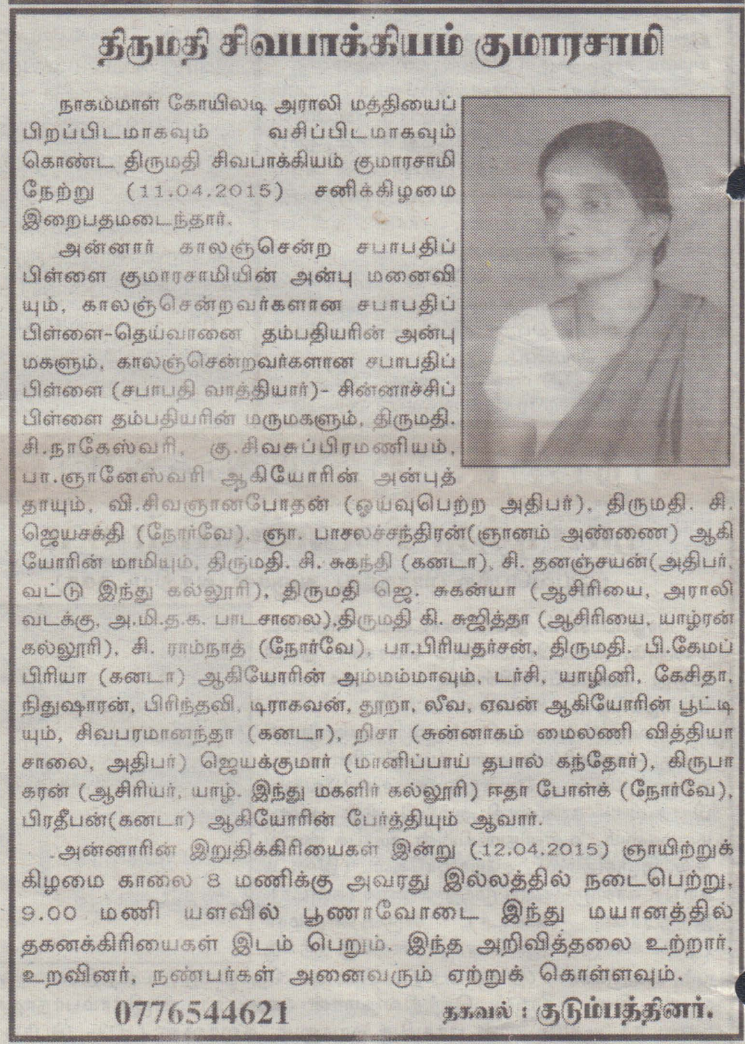 திருமதி சிவபாக்கியம் குமாரசாமி
நாகம்மாள் கோயிலடி அராலி மத்தியைப்
பிறப்பிடமாகவும் வசிப்பிடமாகவும்
கொண்ட திருமதி சிவபாக்கியம் குமாரசாமி
நேற்று (11.04.2015) சனிக்கிழமை
இறைபதமடைந்தார்.
அன்னார் காலஞ்சென்ற சபாபதிப்
பிள்ளை குமாரசாமியின் அன்பு மனைவி
யும், காலஞ்சென்றவர்களான சபாபதிப்
பிள்ளை-தெய்வானை தம்பதியரின் அன்பு
மகளும், காலஞ்சென்றவர்களான சபாபதிப்
பிள்ளை (சபாபதி வாத்தியார்)- சின்னாச்சிப்
பிள்ளை தம்பதியரின் மருமகளும், திருமதி.
சி.நாகேஸ்வரி, கு.சிவசுப்பிரமணியம்,
பா.ஞானேஸ்வரி ஆகியோரின் அன்புத்
தாயும், வி.சிவஞானபோதன் (ஓய்வுபெற்ற அதிபர்), திருமதி. சி.
ஜெயசக்தி (நோர்வே). ஞா. பாசலச்சந்திரன்(ஞானம் அண்ணை) ஆகி
யோரின் மாமியும், திருமதி. சி. சுகந்தி (கனடா), சி. தனஞ்சயன்(அதிபர்,
வட்டு இந்து கல்லூரி), திருமதி ஜெ. சுகன்யா (ஆசிரியை, அராலி
வடக்கு, அ.மி.த.க. பாடசாலை),திருமதி கி. சுஜித்தா (ஆசிரியை, யாழ்ரன்
கல்லூரி), சி. ராம்நாத் (நோர்வே), பா.பிரியதர்சன், திருமதி. பி.கேமப்
பிரியா (கனடா) ஆகியோரின் அம்மம்மாவும், டர்சி, யாழினி, கேசிதா,
நிதுஷாரன், பிரிந்தவி, டிராகவன், தூறா, லீவ, ஏவன் ஆகியோரின் பூட்டி
யும், சிவபரமானந்தா (கனடா), றிசா (சுன்னாகம் மைலணி வித்தியா
சாலை, அதிபர்) ஜெயக்குமார் (மானிப்பாய் தபால் கந்தோர்), கிருபா
கரன் (ஆசிரியர், யாழ். இந்து மகளிர் கல்லூரி) ஈதா போள்க் (நோர்வே),
பிரதீபன்(கனடா) ஆகியோரின் பேர்த்தியும் ஆவார்.
அன்னாரின் இறுதிக்கிரியைகள் இன்று (12.04.2015) ஞாயிற்றுக்
கிழமை காலை 8 மணிக்கு அவரது இல்லத்தில் நடைபெற்று,
9.00 மணி யளவில் பூணாவோடை இந்து மயானத்தில்
தகனக்கிரியைகள் இடம் பெறும். இந்த அறிவித்தலை உற்றார்,
உறவினர், நண்பர்கள் அனைவரும் ஏற்றுக் கொள்ளவும்.
0776544621 தகவல் : குடும்பத்தினர்.